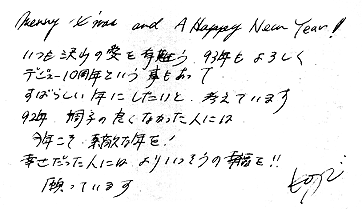 Merry X'mas and A Happy New Year!
いつも沢山の愛を有難う 93年もよろしく
デビュー10周年という事もあって
すばらしい年にしたいと 考えています
92年 調子の良くなかった人には
今年こそ 素敵な年を!
幸せだった人には よりいっそうの幸福を!!
願っています